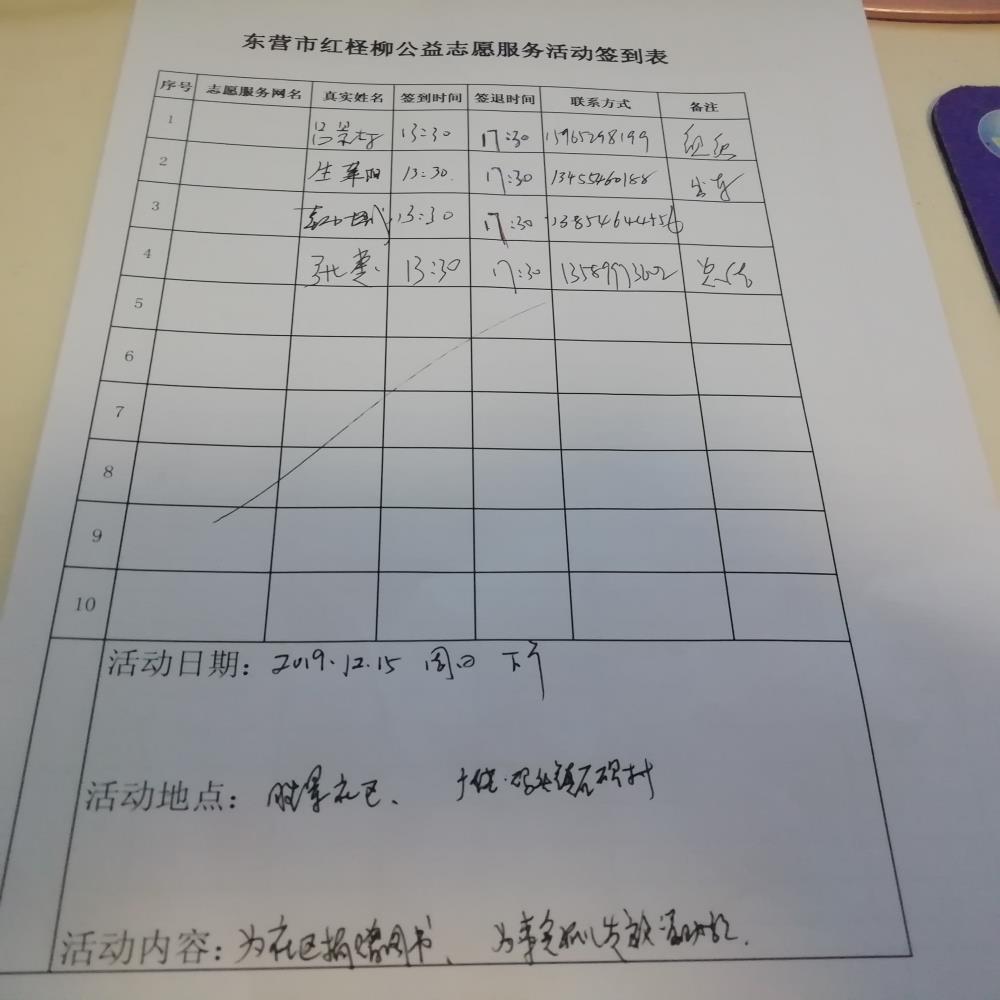 东营市红柽柳公益志愿服务活动签到表
序号 志愿服务网名 真实姓名 签到时间 签退时间 联系方式 备注
1 13:30 17:30 15965298199 组织
2 13:30 17:30 13455460188 出车
3 13:30 17:30 13854644556
4 张 13:30 17:30 13589973602 总结
5
6
7
8
9
10
活动日期: 2019.12.15 周日 下午
活动地点: 社区、 码头镇 村
活动内容: 为社区捐赠图书、 为事实孤儿发放